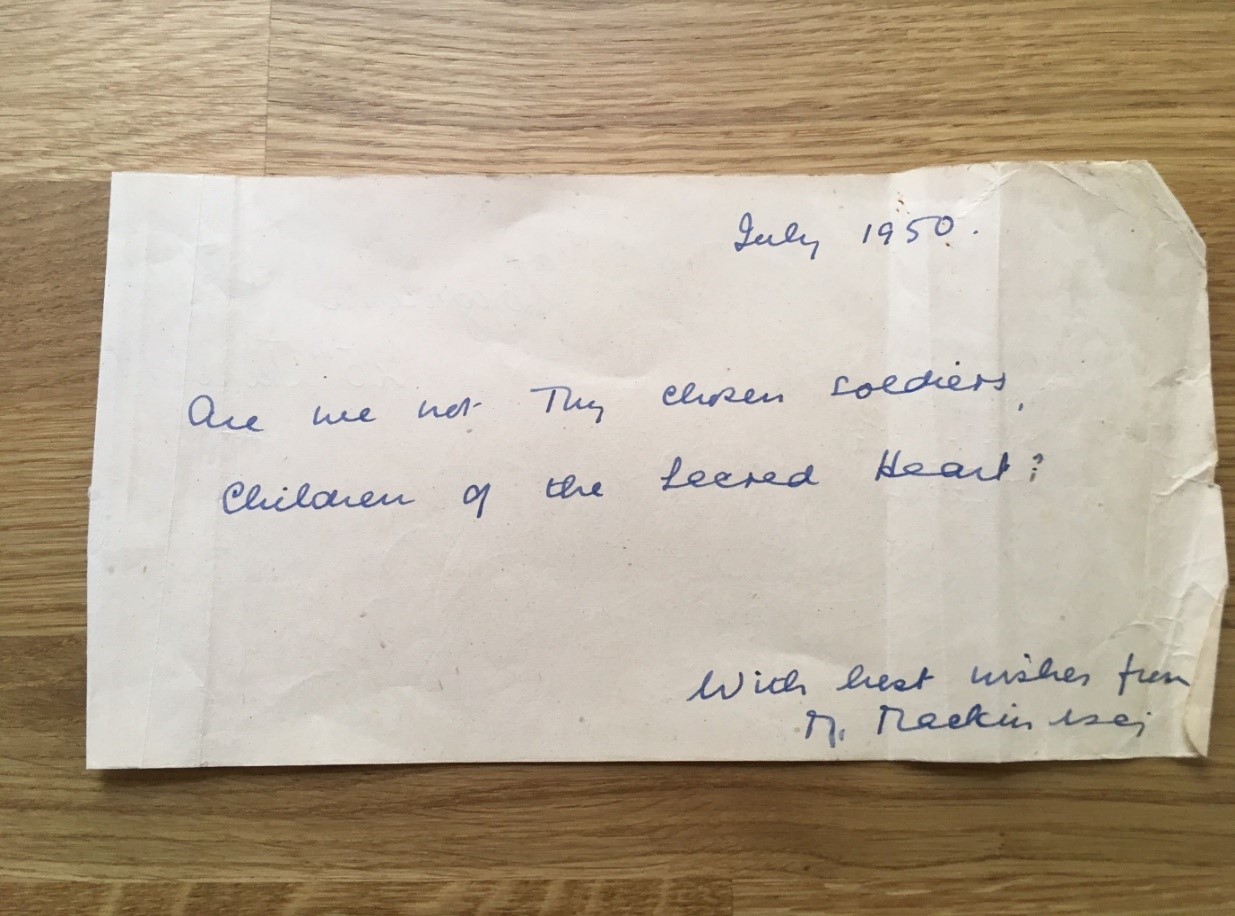 July 1950.
Are we not Thy chosen soldiers,
Children of the Sacred Heart?
With best wishes from
M. Mackin